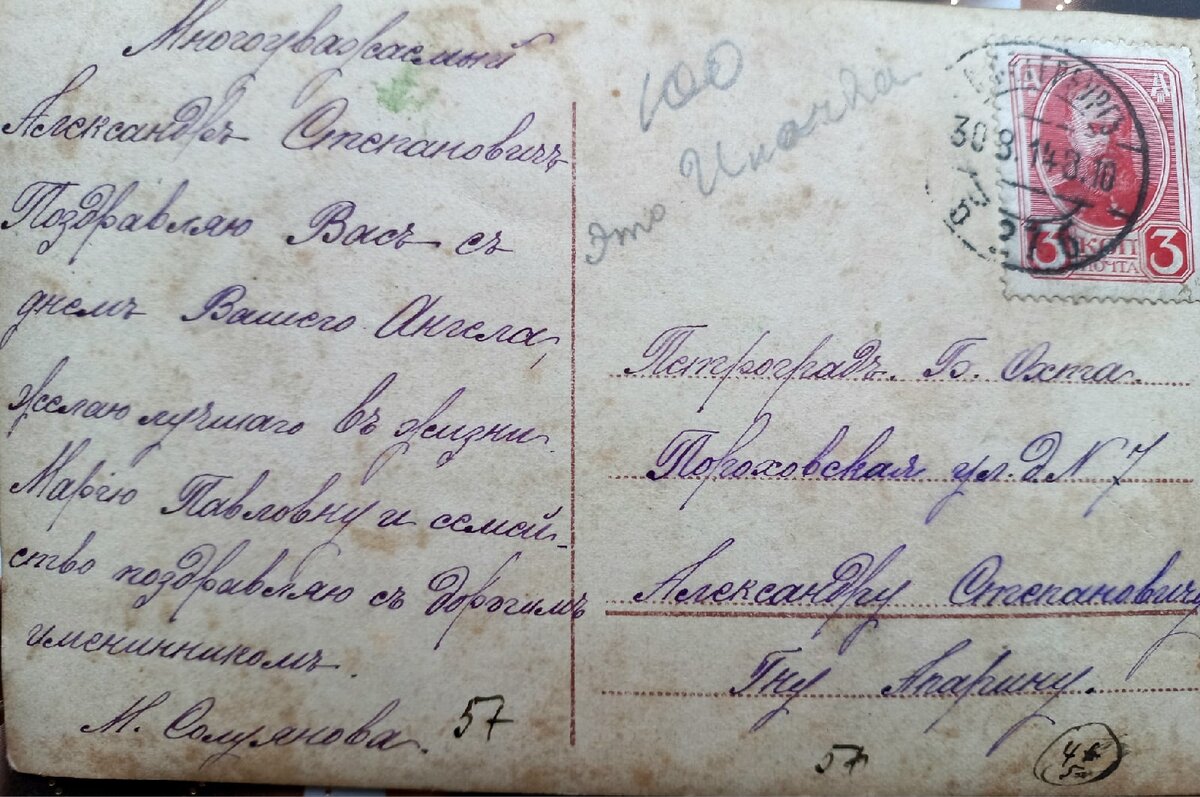 Многоуважаемый
Александръ Степановичъ
Поздравляю Васъ съ
днемъ Вашего Ангела,
желаю лучшаго въ жизни.
Марію Павловну и семей-
ство поздравляю съ дорогимъ
именинникомъ.
М. Солуянова.
57
100
Это
30 8.14 8.10
3 КОП 3
ПОЧТА
Петроградъ. Б. Охта.
Пороховская ул. д N 7
Александру Степановичу
Гну Апарину.
57